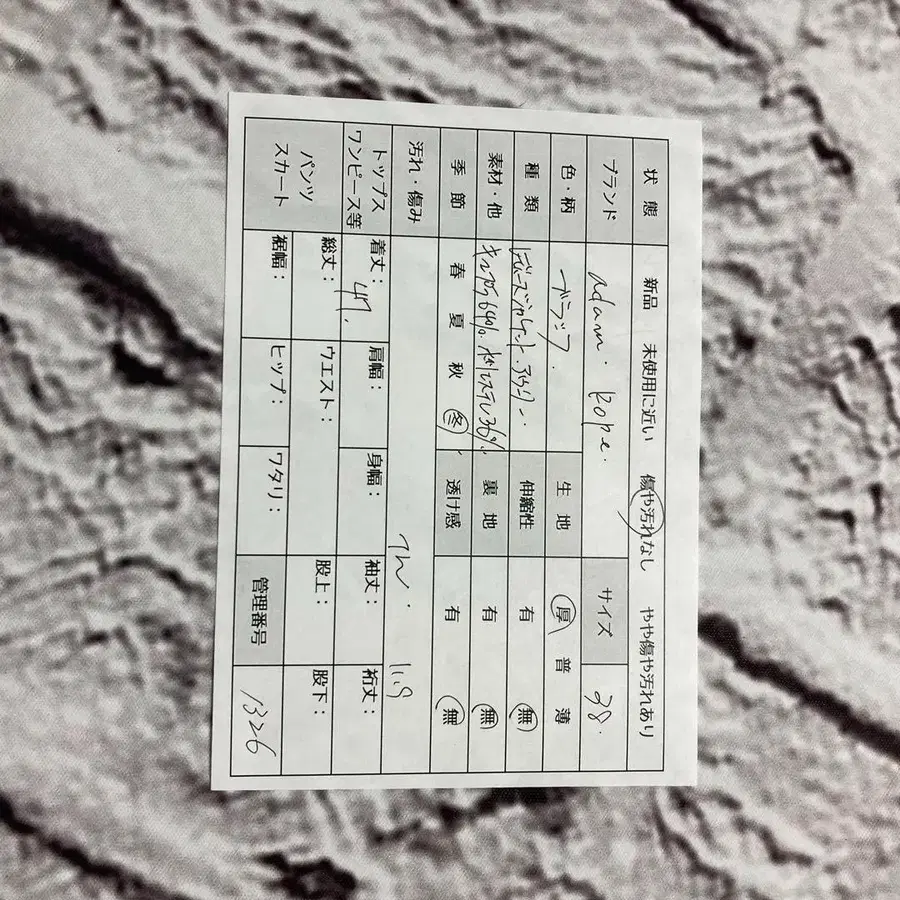 状態 新品 未使用に近い 傷や汚れなし やや傷や汚れあり
ブランド adam. kope. サイズ 38.
色・柄 ブラック. 生地 厚 普 薄
種類 伸縮性 有 無
素材・他 64%. ポリエステル36%. 裏地 有 無
季節 春 夏 秋 冬 透け感 有 無
汚れ・傷み
トップス ワンピース等 着丈： 47. 肩幅： 身幅： 袖丈： 裄丈：
パンツ スカート 総丈： ウエスト： 股上： 股下：
裾幅： ヒップ： ワタリ： 管理番号 1326